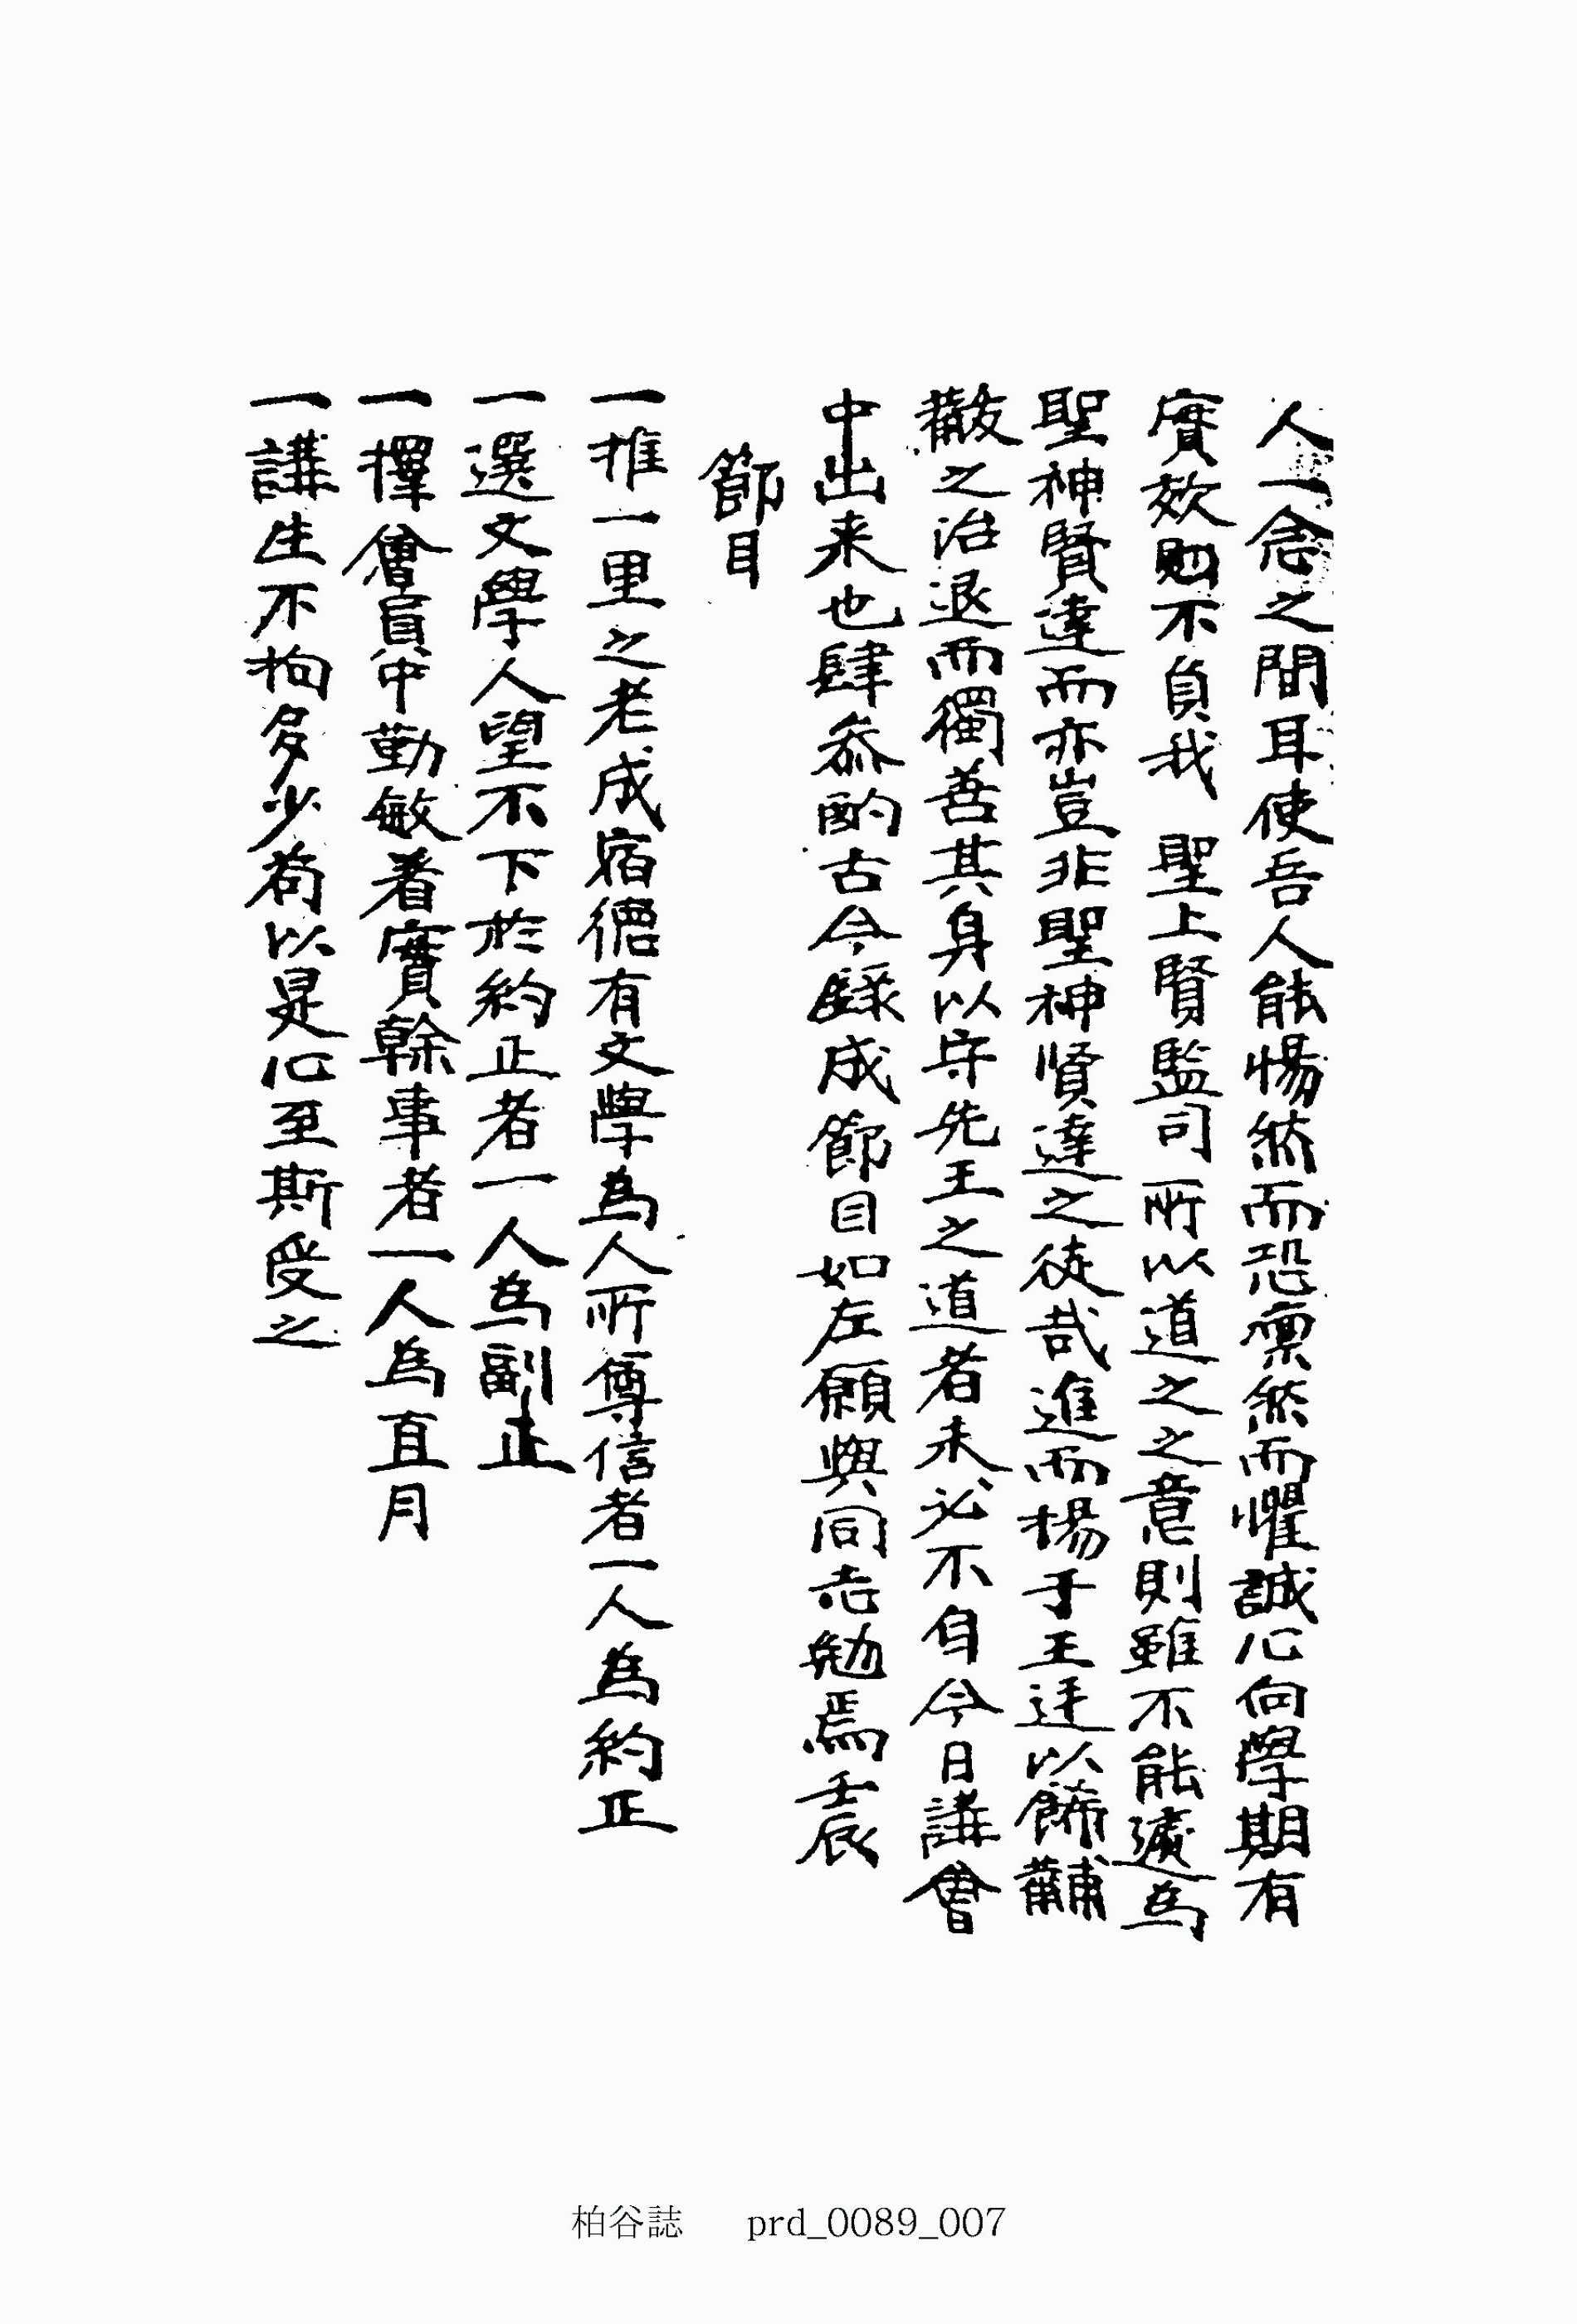 人一念之間耳使吾人能惕然而恐凛然而懼誠心向學期有
實效則不負我 聖上賢監司所以道之之意則雖不能遽為
聖神賢達而亦豈非聖神賢達之徒哉進而揚于王廷以餙黼
黻之治退而獨善其身以守先王之道者未必不自今日講會
中出来也肆叅酌古今
成節目如左願與同志勉焉壬辰
節目
一推一里之老成宿德有文學為人所尊信者一人為約正
一選文學人望不下於約正者一人為副正
一擇會員中勤敏着實幹事者一人為直月
一講生不拘多少苟以是心至斯受之
柏谷誌 prd_0089_007